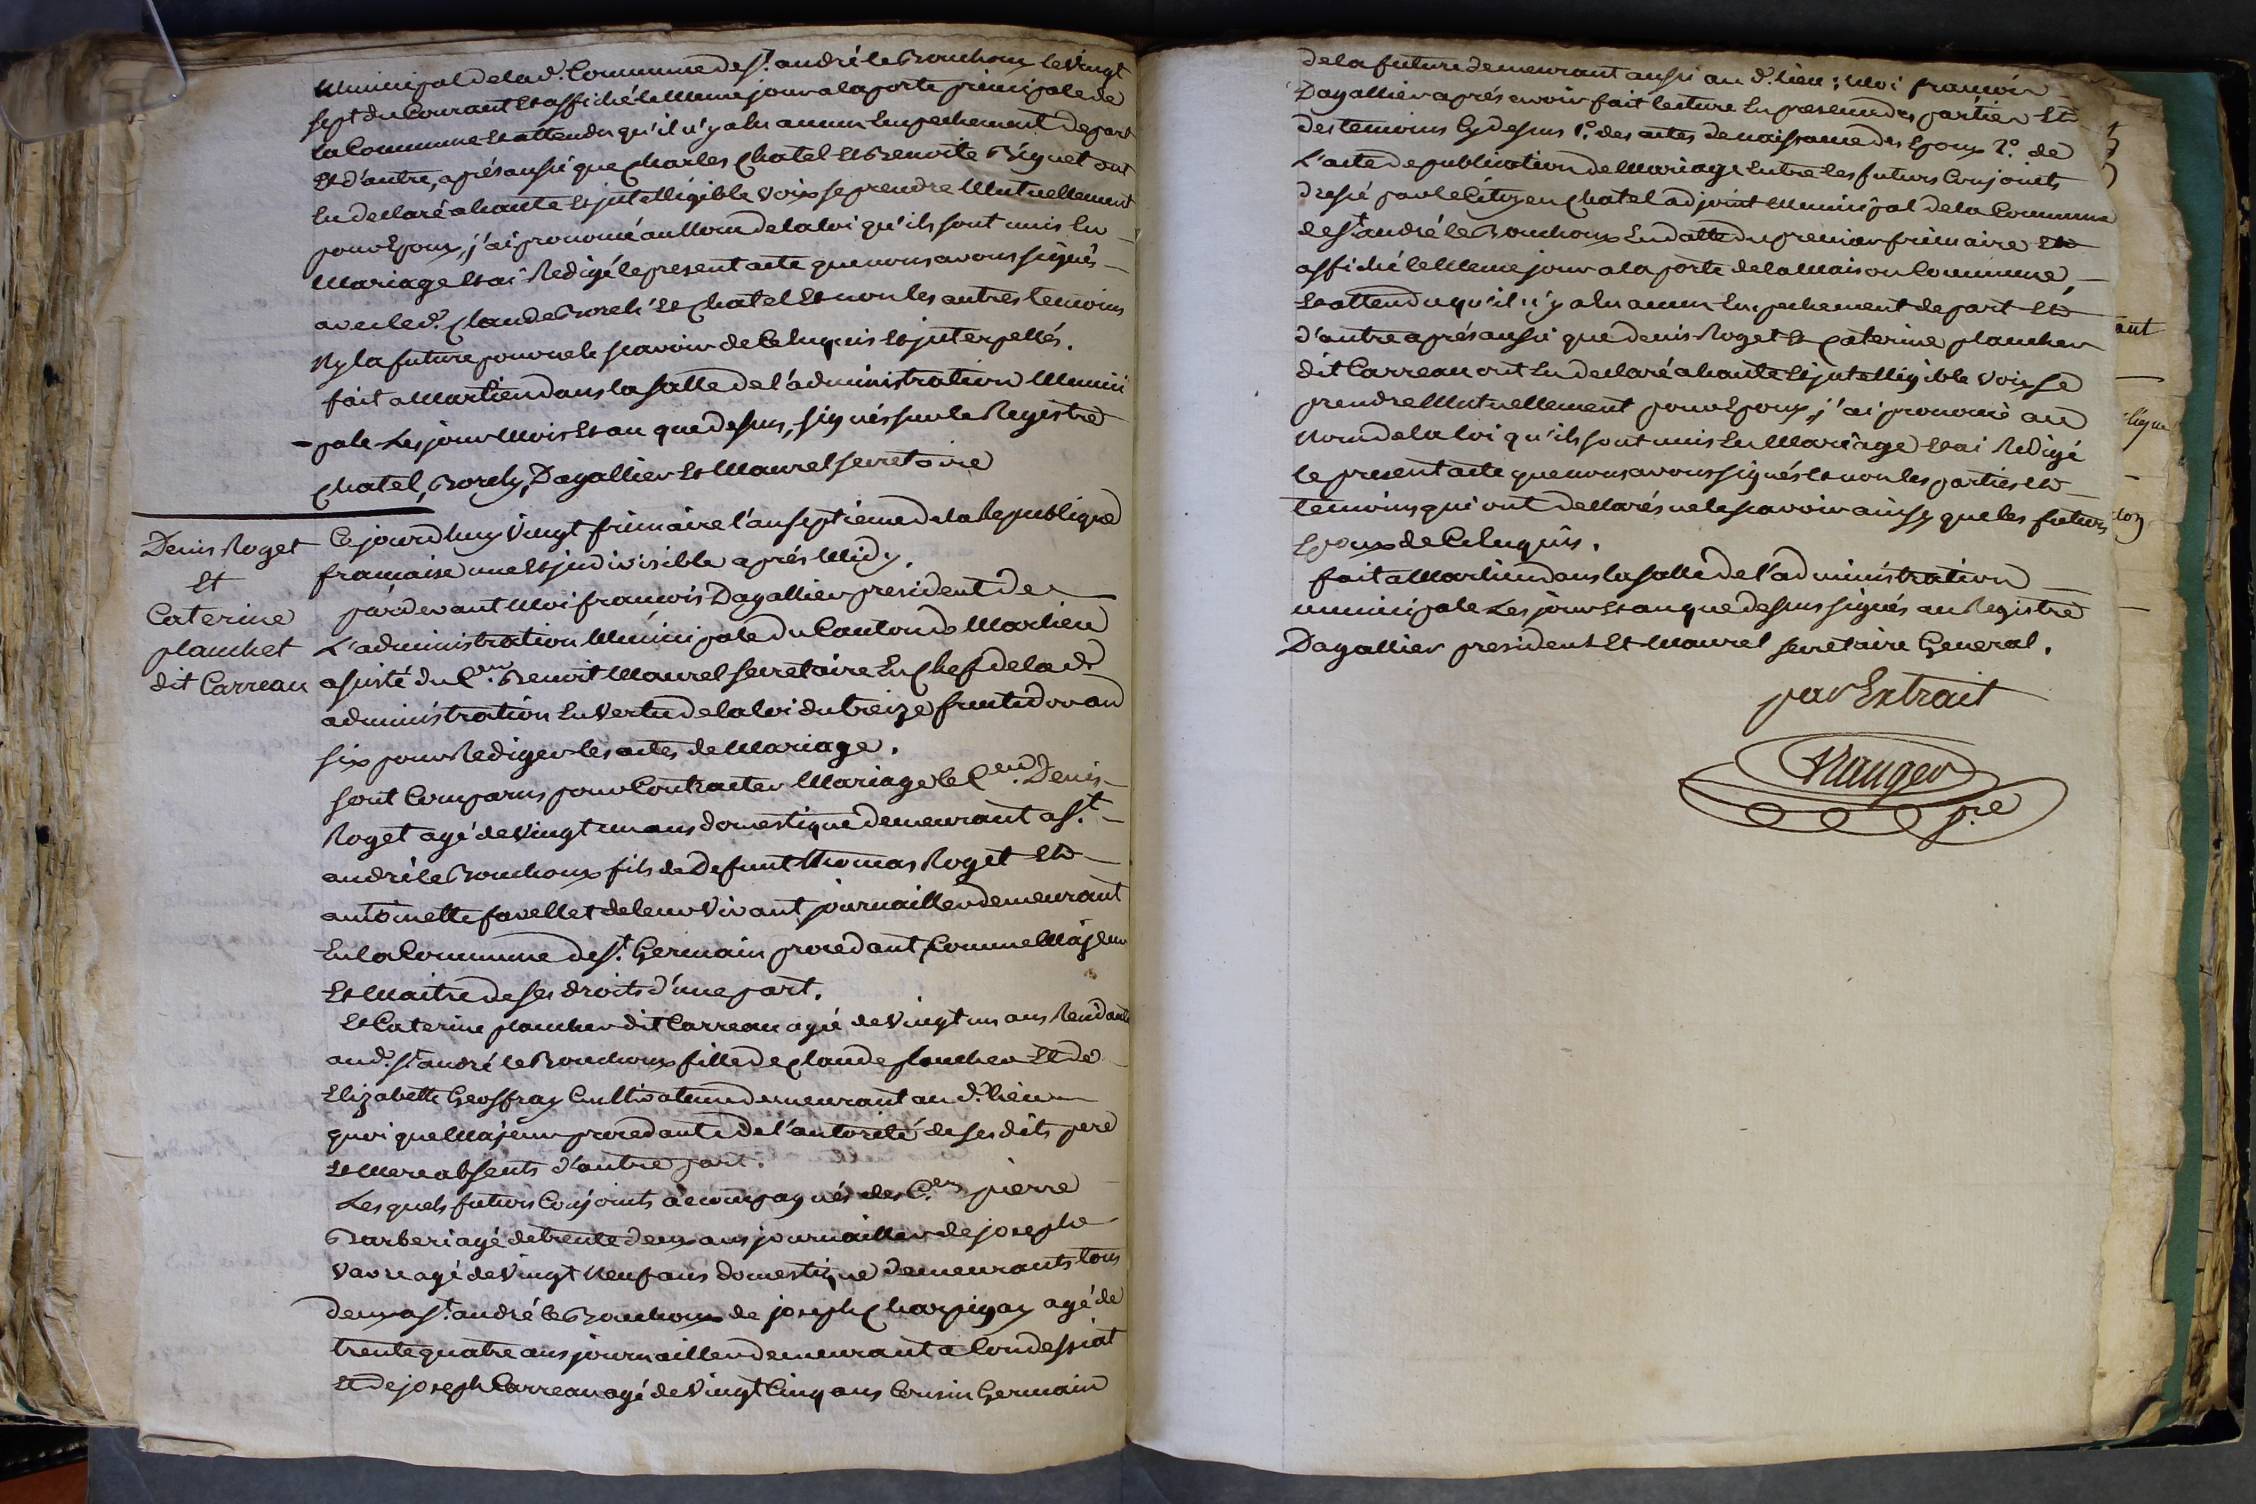 Municipal de la d. Commune de St. andré le Bouchoux le vingt
sept du Courant Et affiché le Meme jour a la porte principale de
la Commune Et attendu qu'il n'y a Eu aucun Empechement de part
Et d'autre, aprés aussi que Charles Chatel Et Benoite Biguet ont
Eu declaré a haute Et jntelligible voix se prendre Mutuellement
pour Epoux, j'ai prononcé au Nom de la loi qu'ils sont unis En
Mariage Et ai Redigé le present acte que nous avons signés
avec led. Claude Boreli Et Chatel Et non les autres temoins
Ny la future pour ne le scavoir de Ce Enquis Et jnterpellés.
fait a Marlieu dans la salle de l'administration Munici
- pale Les jour Mois Et an que dessus, signés sur le Registre
Chatel, Borely, Dagallier Et Maurel secretaire
Denis Roget
Et
Caterine
planchet
dit Carreau
Cejourdhuy vingt frimaire l'an septieme de la Republique
francaise une Et jndivisible aprés Midy.
pardevant Moi francois Dagallier president de
L'administration Municipale du Canton de Marlieu
assisté du C.en Benoit Maurel secretaire En Chef de la d.
administration En vertu de la loi du treize fructidor an
six pour Rediger les actes de Mariage.
sont Comparus pour Contracter Mariage le C.en Denis
Roget agé de vingt un ans domestique demeurant a St.
andré le Bouchoux fils de Defunt thomas Roget Et
antoinette favellet de leur vivant journailler demeurant
En la Commune de St. Germain procedant Comme Majeur
Et Maitre de ses droits d'une part.
Et Caterine plancher dit Carreau agée de vingt un ans Residante
au d. St andré le Bouchoux fille de Claude plancher Et de
Elizabette Geoffray Cultivateurs demeurant au d. lieu
quoi que Majeur procedante de l'autorité de ses dits pere
Et Mere absents d'autre part.
Les quels futurs Conjoints accompagnés des C.ens pierre
Barberi agé de trente deux ans journaillier de joseph
vavre agé de vingt Neuf ans domestique demeurants tous
deux a St. andré le Bouchoux de joseph Charpigny agé de
trente quatre ans journailler demeurant a Condessiat
Et de joseph Carreau agé de vingt Cinq ans Cousin Germain
de la future demeurant aussi au d. lieu; Moi francois
Dagallier aprés avoir fait lecture En presence des parties Et
des temoins Cy dessus 1.º des actes de naissance des Epoux 2.º de
L'acte de publication de Mariage Entre les futurs Conjoints
dressé par le Citoyen Chatel adjoint Municipal de la Commune
de St. andré le Bouchoux En datte du premier frimaire Et
affiché le Meme jour a la porte de la Maison Commune,
Et attendu qu'il n'y a Eu aucun Empechement de part Et
d'autre aprés aussi que denis Roget Et Caterine plancher
dit Carreau ont Eu declaré a haute Et jntelligible voix se
prendre Mutuellement pour Epoux, j'ai prononcé au
Nom de la loi qu'ils sont unis En Mariage Et ai Redigé
le present acte que nous avons signés Et non les parties Et
temoins qui ont declarés ne le scavoir ainsy que les futurs
Epoux de Ce Enquis.
fait a Marlieu dans la salle de l'administration
municipale Les jour Et an que dessus signés au Registre
Dagallier president Et Maurel secretaire General.
par Extrait